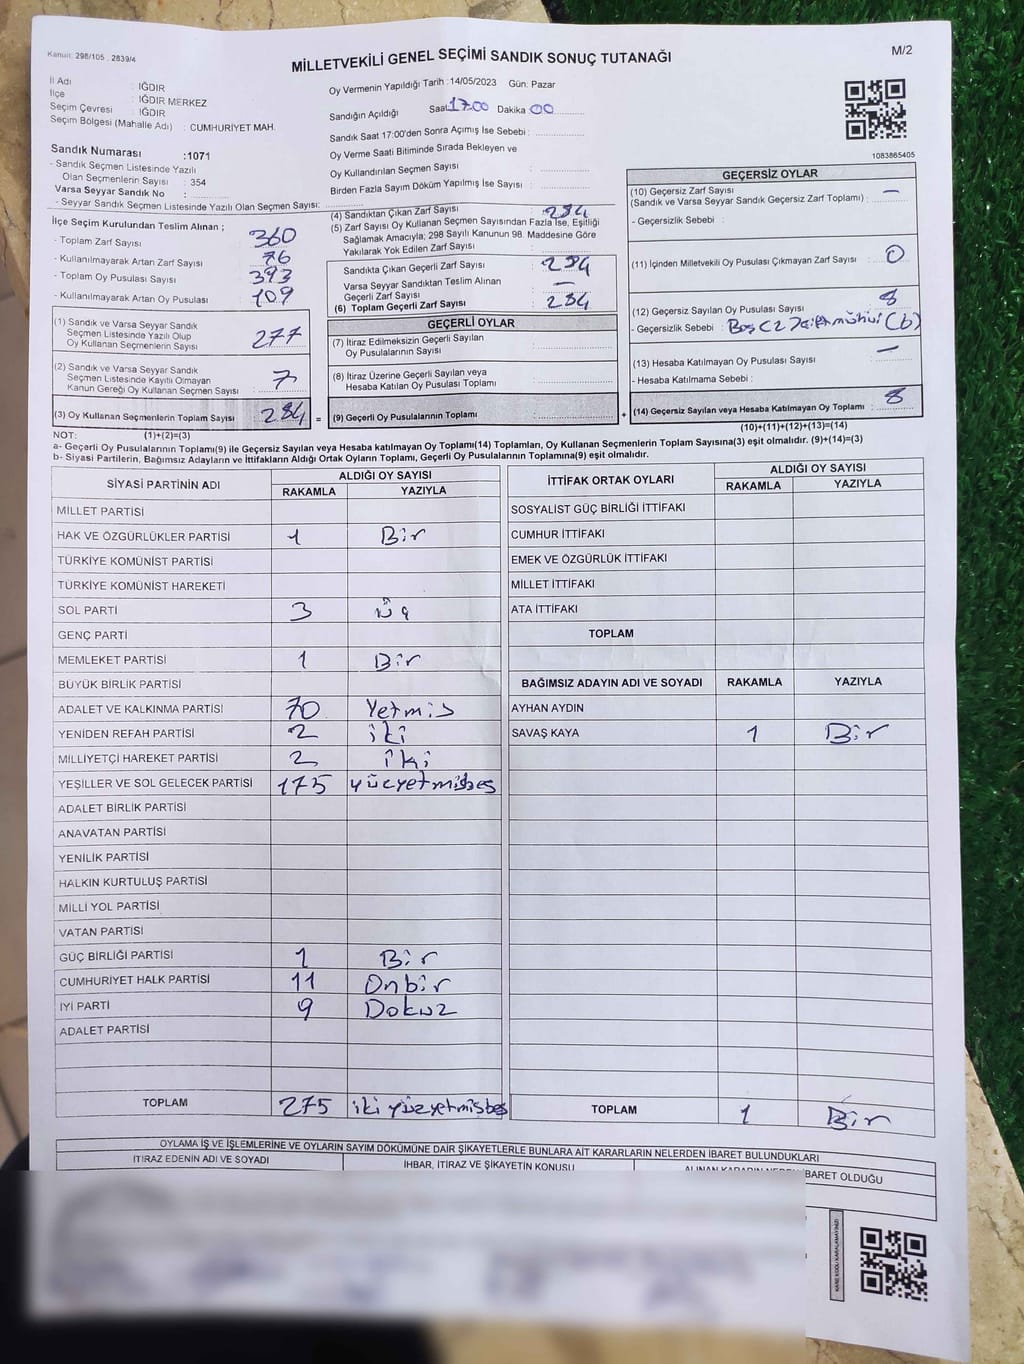 Kanun: 298/105 , 2839/4
MİLLETVEKİLİ GENEL SEÇİMİ SANDIK SONUÇ TUTANAĞI
M/2
İl Adı : IĞDIR
İlçe : IĞDIR MERKEZ
Seçim Çevresi : IĞDIR
Seçim Bölgesi (Mahalle Adı) : CUMHURİYET MAH.
Sandık Numarası :1071
- Sandık Seçmen Listesinde Yazılı
Olan Seçmenlerin Sayısı : 354
Varsa Seyyar Sandık No :
- Seyyar Sandık Seçmen Listesinde Yazılı Olan Seçmen Sayısı:
Oy Vermenin Yapıldığı Tarih :14/05/2023 Gün: Pazar
Sandığın Açıldığı Saat 17:00 Dakika 00
Sandık Saat 17:00'den Sonra Açımış İse Sebebi :
Oy Verme Saati Bitiminde Sırada Bekleyen ve
Oy Kullandırılan Seçmen Sayısı :
Birden Fazla Sayım Döküm Yapılmış İse Sayısı :
1083865405
İlçe Seçim Kurulundan Teslim Alınan ;
- Toplam Zarf Sayısı : 360
- Kullanılmayarak Artan Zarf Sayısı : 76
- Toplam Oy Pusulası Sayısı : 393
- Kullanılmayarak Artan Oy Pusulası : 109
(1) Sandık ve Varsa Seyyar Sandık
Seçmen Listesinde Yazılı Olup
Oy Kullanan Seçmenlerin Sayısı : 277
(2) Sandık ve Varsa Seyyar Sandık
Seçmen Listesinde Kayıtlı Olmayan
Kanun Gereği Oy Kullanan Seçmen Sayısı : 7
(3) Oy Kullanan Seçmenlerin Toplam Sayısı : 284 =
(4) Sandıktan Çıkan Zarf Sayısı : 284
(5) Zarf Sayısı Oy Kullanan Seçmen Sayısından Fazla İse, Eşitliği
Sağlamak Amacıyla; 298 Sayılı Kanunun 98. Maddesine Göre
Yakılarak Yok Edilen Zarf Sayısı :
Sandıkta Çıkan Geçerli Zarf Sayısı : 284
Varsa Seyyar Sandıktan Teslim Alınan
Geçerli Zarf Sayısı : —
(6) Toplam Geçerli Zarf Sayısı : 284
GEÇERLİ OYLAR
(7) İtiraz Edilmeksizin Geçerli Sayılan
Oy Pusulalarının Sayısı :
(8) İtiraz Üzerine Geçerli Sayılan veya
Hesaba Katılan Oy Pusulası Toplamı :
(9) Geçerli Oy Pusulalarının Toplamı : +
GEÇERSİZ OYLAR
(10) Geçersiz Zarf Sayısı : —
(Sandık ve Varsa Seyyar Sandık Geçersiz Zarf Toplamı)
- Geçersizlik Sebebi :
(11) İçinden Milletvekili Oy Pusulası Çıkmayan Zarf Sayısı : 0
(12) Geçersiz Sayılan Oy Pusulası Sayısı : 8
- Geçersizlik Sebebi : Boş (2 (b)
(13) Hesaba Katılmayan Oy Pusulası Sayısı : —
- Hesaba Katılmama Sebebi :
(14) Geçersiz Sayılan veya Hesaba Katılmayan Oy Toplamı : 8
NOT: (1)+(2)=(3)
(10)+(11)+(12)+(13)=(14)
a- Geçerli Oy Pusulalarının Toplamı(9) ile Geçersiz Sayılan veya Hesaba katılmayan Oy Toplamı(14) Toplamları, Oy Kullanan Seçmenlerin Toplam Sayısına(3) eşit olmalıdır. (9)+(14)=(3)
b- Siyasi Partilerin, Bağımsız Adayların ve İttifakların Aldığı Ortak Oyların Toplamı, Geçerli Oy Pusulalarının Toplamına(9) eşit olmalıdır.
SİYASİ PARTİNİN ADI ALDIĞI OY SAYISI
RAKAMLA YAZIYLA
MİLLET PARTİSİ
HAK VE ÖZGÜRLÜKLER PARTİSİ 1 Bir
TÜRKİYE KOMÜNİST PARTİSİ
TÜRKİYE KOMÜNİST HAREKETİ
SOL PARTİ 3 Üç
GENÇ PARTİ
MEMLEKET PARTİSİ 1 Bir
BÜYÜK BİRLİK PARTİSİ
ADALET VE KALKINMA PARTİSİ 70 Yetmis
YENİDEN REFAH PARTİSİ 2 iki
MİLLİYETÇİ HAREKET PARTİSİ 2 iki
YEŞİLLER VE SOL GELECEK PARTİSİ 175 yüzyetmisbes
ADALET BİRLİK PARTİSİ
ANAVATAN PARTİSİ
YENİLİK PARTİSİ
HALKIN KURTULUŞ PARTİSİ
MİLLİ YOL PARTİSİ
VATAN PARTİSİ
GÜÇ BİRLİĞİ PARTİSİ 1 Bir
CUMHURİYET HALK PARTİSİ 11 Onbir
İYİ PARTİ 9 Dokuz
ADALET PARTİSİ
TOPLAM 275 iki yüzyetmisbes
İTTİFAK ORTAK OYLARI ALDIĞI OY SAYISI
RAKAMLA YAZIYLA
SOSYALİST GÜÇ BİRLİĞİ İTTİFAKI
CUMHUR İTTİFAKI
EMEK VE ÖZGÜRLÜK İTTİFAKI
MİLLET İTTİFAKI
ATA İTTİFAKI
TOPLAM
BAĞIMSIZ ADAYIN ADI VE SOYADI RAKAMLA YAZIYLA
AYHAN AYDIN
SAVAŞ KAYA 1 Bir
TOPLAM 1 Bir
OYLAMA İŞ VE İŞLEMLERİNE VE OYLARIN SAYIM DÖKÜMÜNE DAİR ŞİKAYETLERLE BUNLARA AİT KARARLARIN NELERDEN İBARET BULUNDUKLARI
İTİRAZ EDENİN ADI VE SOYADI İHBAR, İTİRAZ VE ŞİKAYETİN KONUSU ALINAN KARARIN NEDEN İBARET OLDUĞU
KARE KODU KARALAMAYINIZ!